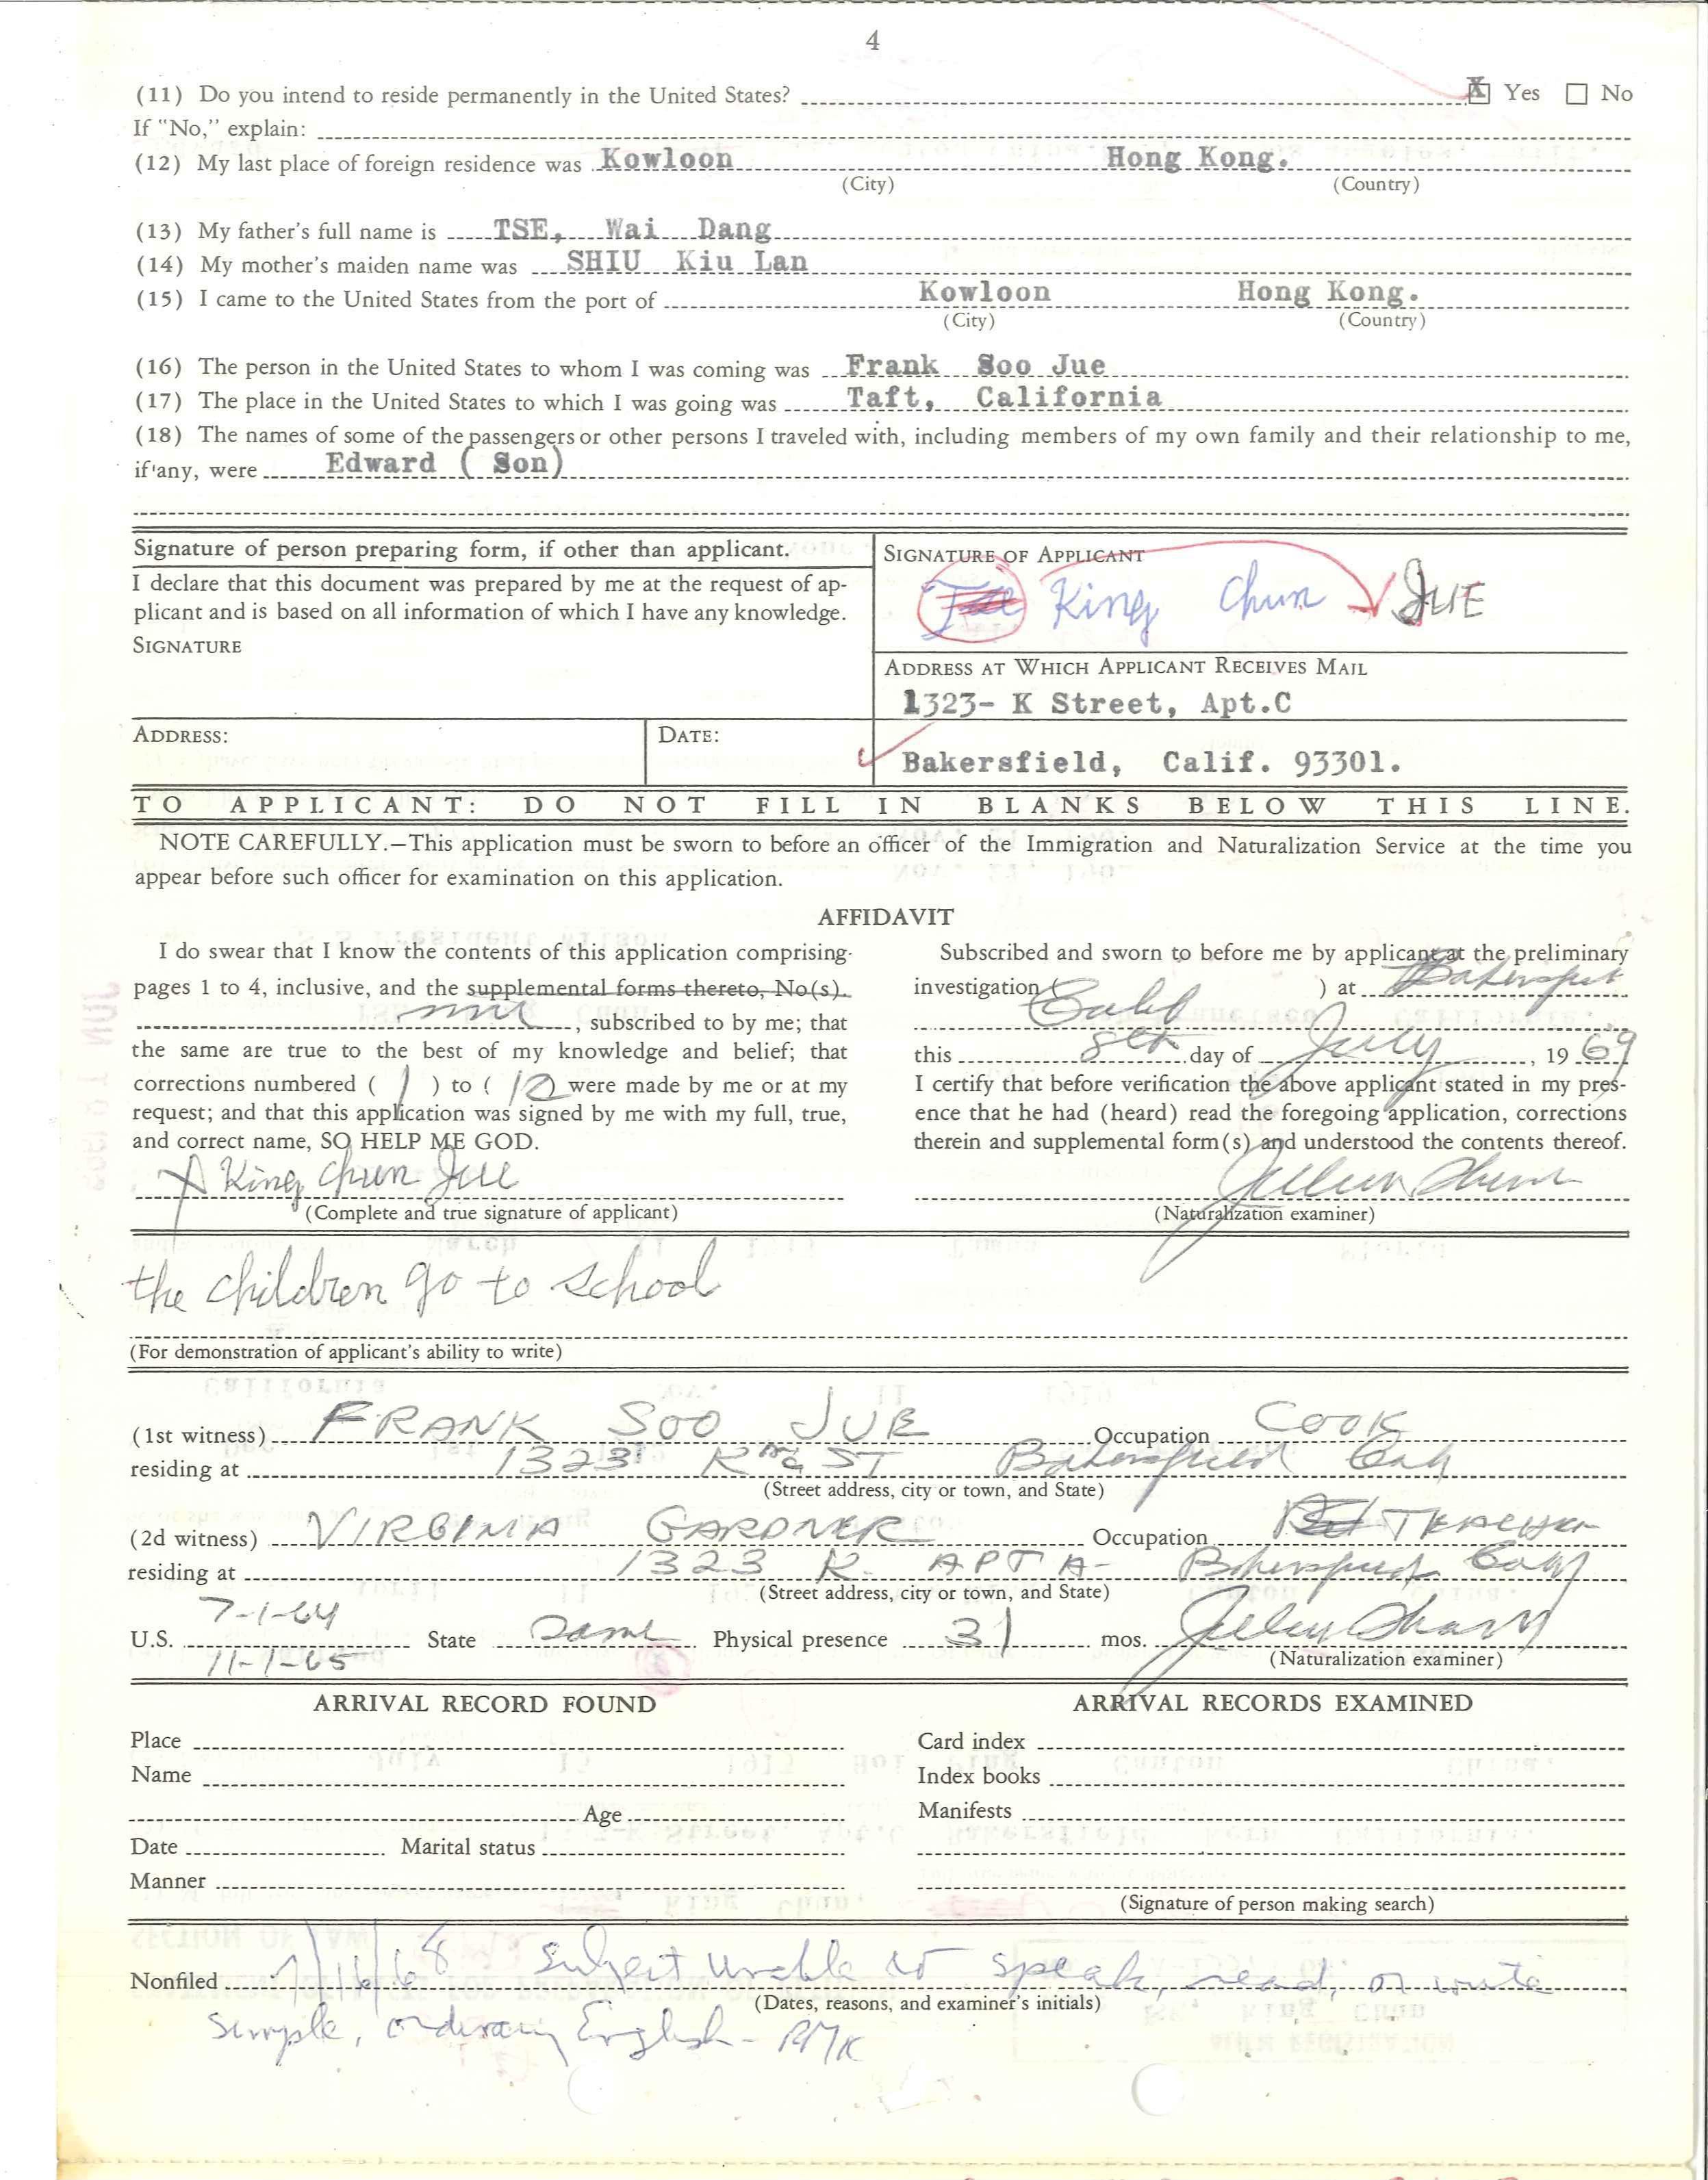 4
(11) Do you intend to reside permanently in the United States? X Yes ☐ No
If "No," explain:
(12) My last place of foreign residence was Kowloon Hong Kong.
(City) (Country)
(13) My father's full name is TSE, Wai Dang
(14) My mother's maiden name was SHIU Kiu Lan
(15) I came to the United States from the port of Kowloon Hong Kong.
(City) (Country)
(16) The person in the United States to whom I was coming was Frank Soo Jue
(17) The place in the United States to which I was going was Taft, California
(18) The names of some of the passengers or other persons I traveled with, including members of my own family and their relationship to me,
if any, were Edward ( Son)
Signature of person preparing form, if other than applicant.
I declare that this document was prepared by me at the request of ap-
plicant and is based on all information of which I have any knowledge.
SIGNATURE
ADDRESS: DATE:
SIGNATURE OF APPLICANT
King Chun JUE
ADDRESS AT WHICH APPLICANT RECEIVES MAIL
1323- K Street, Apt.C
Bakersfield, Calif. 93301.
TO APPLICANT: DO NOT FILL IN BLANKS BELOW THIS LINE.
NOTE CAREFULLY.—This application must be sworn to before an officer of the Immigration and Naturalization Service at the time you
appear before such officer for examination on this application.
AFFIDAVIT
I do swear that I know the contents of this application comprising
pages 1 to 4, inclusive, and the supplemental forms thereto, No(s).
, subscribed to by me; that
the same are true to the best of my knowledge and belief; that
corrections numbered ( 1 ) to ( 12 ) were made by me or at my
request; and that this application was signed by me with my full, true,
and correct name, SO HELP ME GOD.
X King Chun Jue
(Complete and true signature of applicant)
Subscribed and sworn to before me by applicant at the preliminary
investigation ( ) at Bakersfield
Calif
this 8th day of July, 19 69
I certify that before verification the above applicant stated in my pres-
ence that he had (heard) read the foregoing application, corrections
therein and supplemental form(s) and understood the contents thereof.
(Naturalization examiner)
the children go to school
(For demonstration of applicant's ability to write)
(1st witness) FRANK SOO JUE Occupation COOK
residing at 1323 K ST Bakersfield Calif
(Street address, city or town, and State)
(2d witness) VIRGINIA GARDNER Occupation TEACHER
residing at 1323 K. APT A- Bakersfield Calif
(Street address, city or town, and State)
7-1-64
U.S. State Same Physical presence 31 mos.
11-1-65 (Naturalization examiner)
ARRIVAL RECORD FOUND
Place
Name
Age
Date Marital status
Manner
ARRIVAL RECORDS EXAMINED
Card index
Index books
Manifests
(Signature of person making search)
Nonfiled 7/16/68 Subject unable to speak, read, or write
(Dates, reasons, and examiner's initials)
simple, ordinary English - RMK